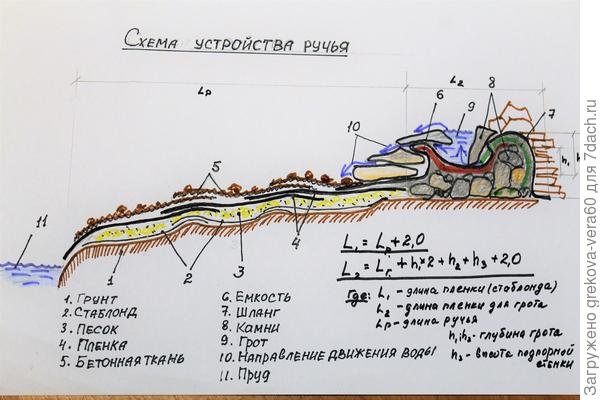 Схема устройства ручья
Lр
L2
6
9
8
7
10
5
h1
h
4
11
1
2
3
L1 = Lр + 2,0
L2 = Lг + h1×2 + h2 + h3 + 2,0
где: L1 - длина пленки (стаблонда)
L2 - длина пленки для грота
Lр - длина ручья
h1h2 - глубина грота
h3 - высота подпорной стенки
1. Грунт
2. Стаблонд
3. Песок
4. Пленка
5. Бетонная ткань
6. Емкость
7. Шланг
8. Камни
9. Грот
10. Направление движения воды
11. Пруд
Загружено grekova-vera60 для 7dach.ru